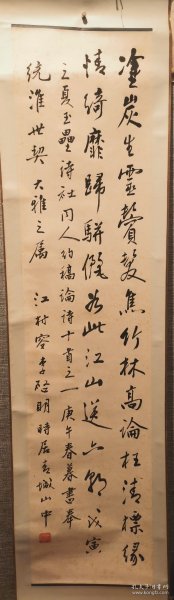 塗炭生靈鬢髮焦竹林高論枉清標緣
情綺靡歸駢儷如此江山送六朝 戊寅
之夏玉壘詩社同人約稿論詩十首之一 庚午春暮書奉
統淮世契 大雅之屬
江村客李啟明時居青城山中